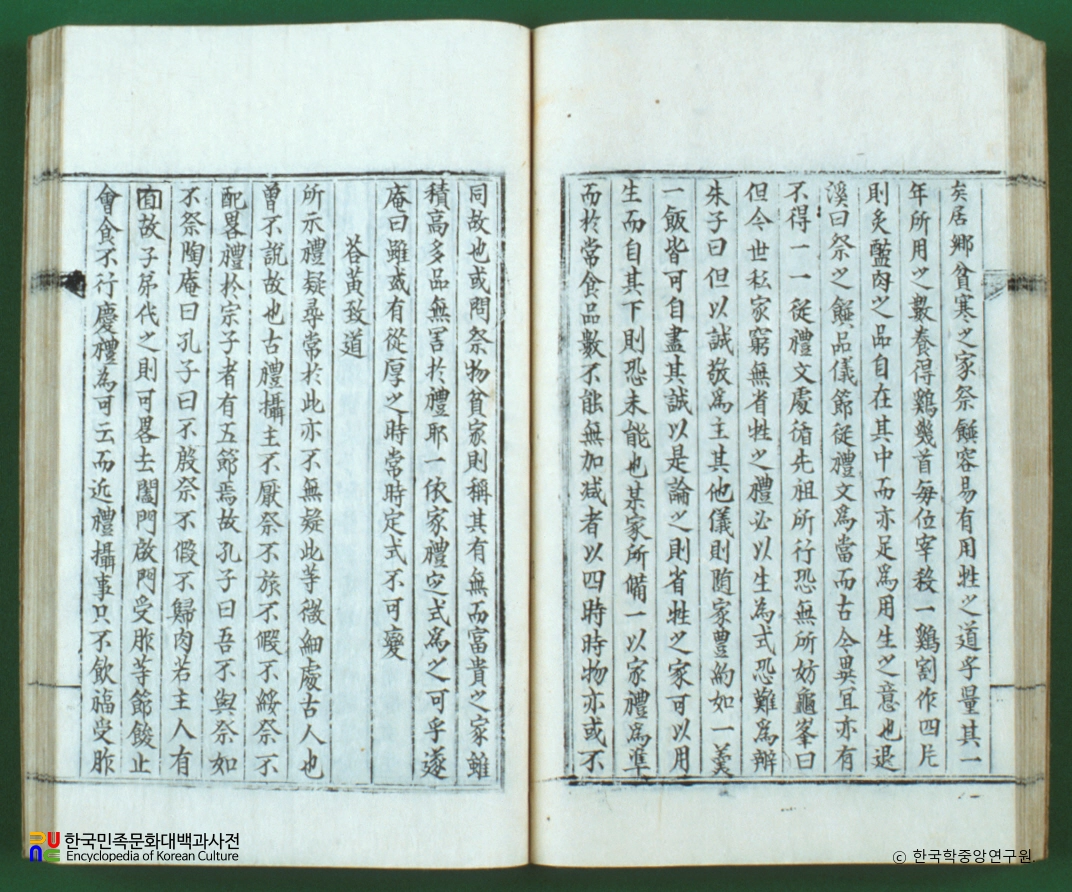 矣居鄕貧寒之家祭饌容易有用牲之道乎量其一
年所用之數養得鷄幾首每位宰殺一鷄割作四片
則炙醢肉之品自在其中而亦足爲用生之意也退
溪曰祭之饌品儀節從禮文爲當而古今異宜亦有
不得一一從禮文處循先祖所行恐無所妨龜峯曰
但今世私家窮無省牲之禮必以生爲式恐難爲辦
朱子曰但以誠敬爲主其他儀則随家豊約如一羹
一飯皆可自盡其誠以是論之則省牲之家可以用
生而自其下則恐未能也某家所備一以家禮爲準
而於常食品數不能無加减者以四時時物亦或不
同故也或問祭物貧家則稱其有無而富貴之家雖
積高多品無害於禮耶一依家禮定式爲之可乎遂
庵曰雖或有從厚之時常時定式不可廢
答黃致道
所示禮疑尋常於此亦不無疑此等微細處古人也
曾不說故也古禮攝主不厭祭不旅不假不綏祭不
配畧禮於宗子者有五節焉故孔子曰吾不與祭如
不祭陶庵曰孔子曰不殷祭不假不歸肉若主人有
故子弟代之則可畧去闔門啟門受胙等節餕止
會食不行慶禮為可云而近禮攝事只不飮福受胙
한국민족문화대백과사전
Encyclopedia of Korean Culture
© 한국학중앙연구원